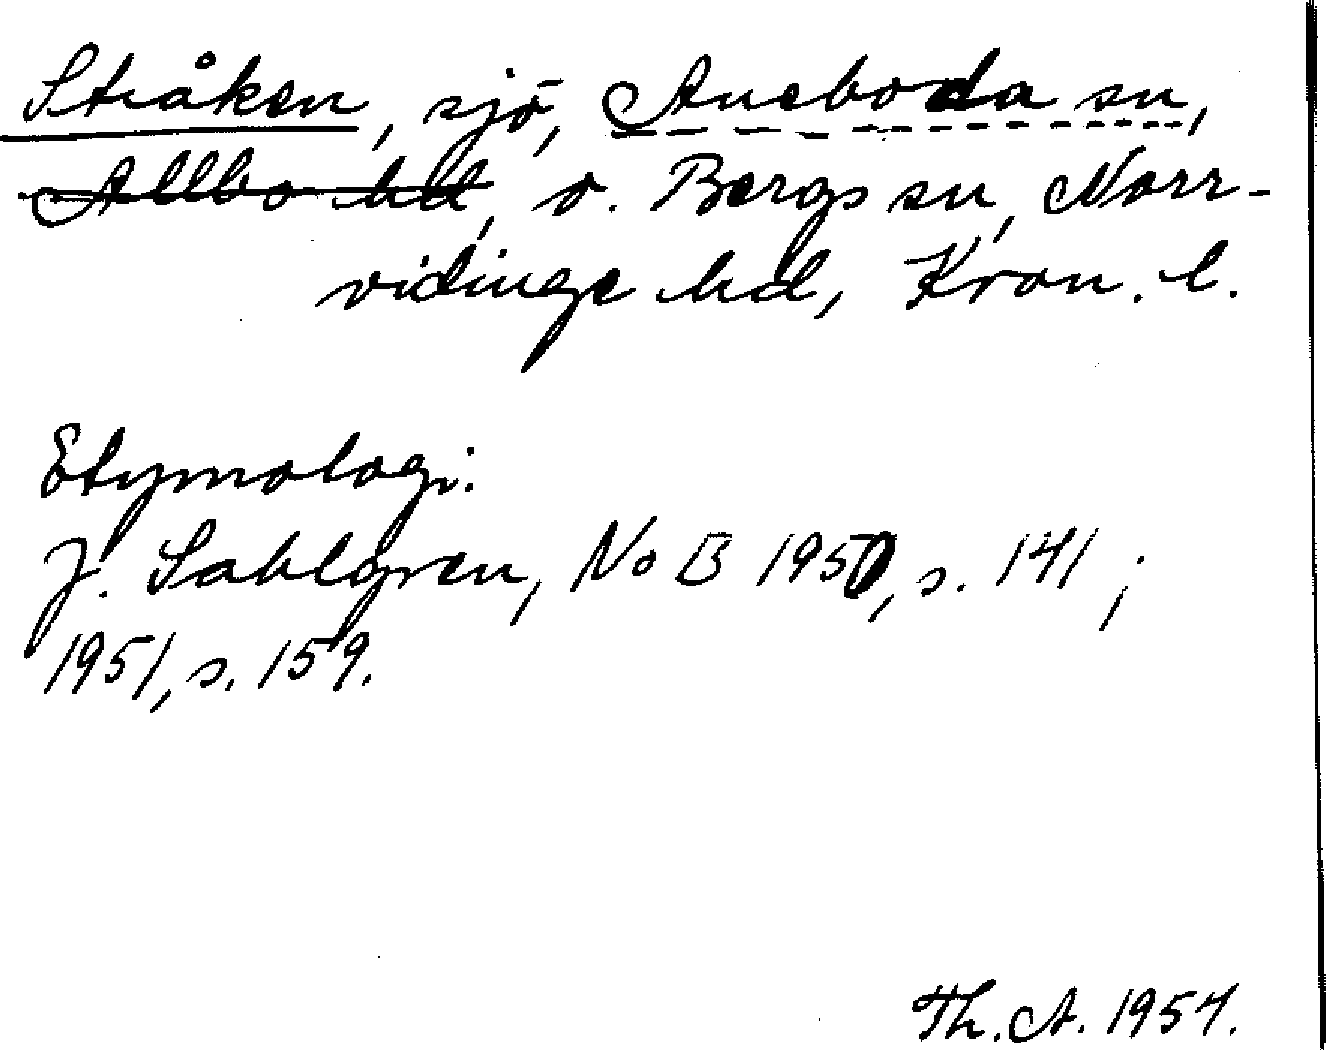 Stråken, sjö, Aneboda sn,
Allbo hd, o. Bergs sn, Norr-
vidinge hd, Kron. l.
Etymologi:
J. Sahlgren, NoB 1950, s. 141;
1951, s. 159.
Th. A. 1954.